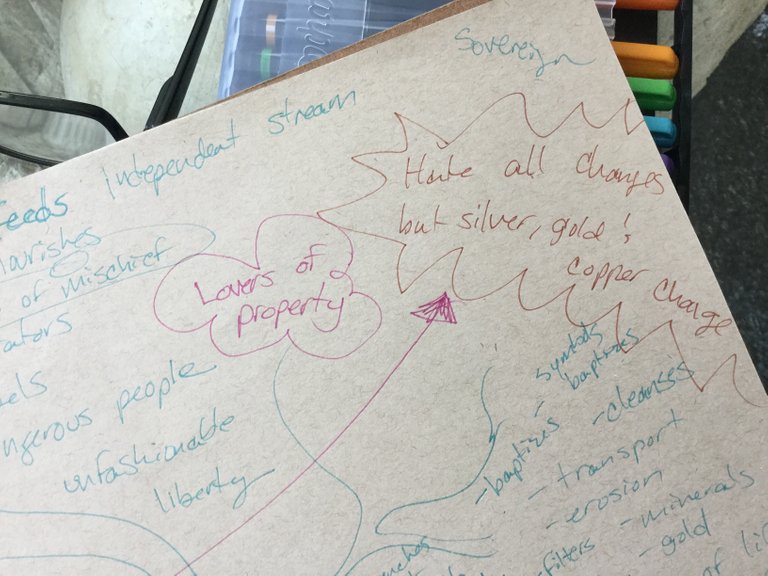 Sovereign
feeds independent stream
Hate all changes
but silver, gold &
copper change
nourishes
of mischief
Lovers of
property
dangerous people
unfashionable
liberty
symbols
baptizes
- baptizes - cleanses
- transport
- erosion
- filters - minerals
- gold
of life